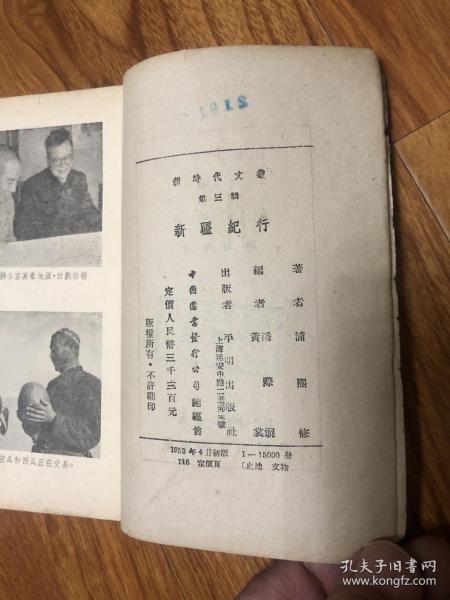 2191
新時代文叢
第三輯
新疆紀行
著者 浦熙修
編者 潘際坰 黃裳
出版者 平明出版社
上海延安中路
中國圖書發行公司總經售
定價人民幣三千三百元
版權所有·不許翻印
1953年4月初版 1—15000册
116 定價頁
文物
看地圖·計劃
瓜和西瓜正在交易。
孔夫子旧书网
kongfz.com